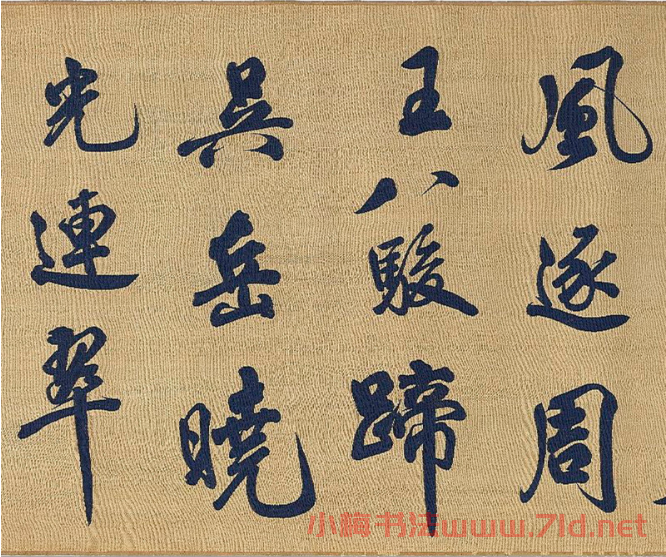 風逐周
王八駿蹄
吴岳曉
光連翠
小梅书法www.7ld.net